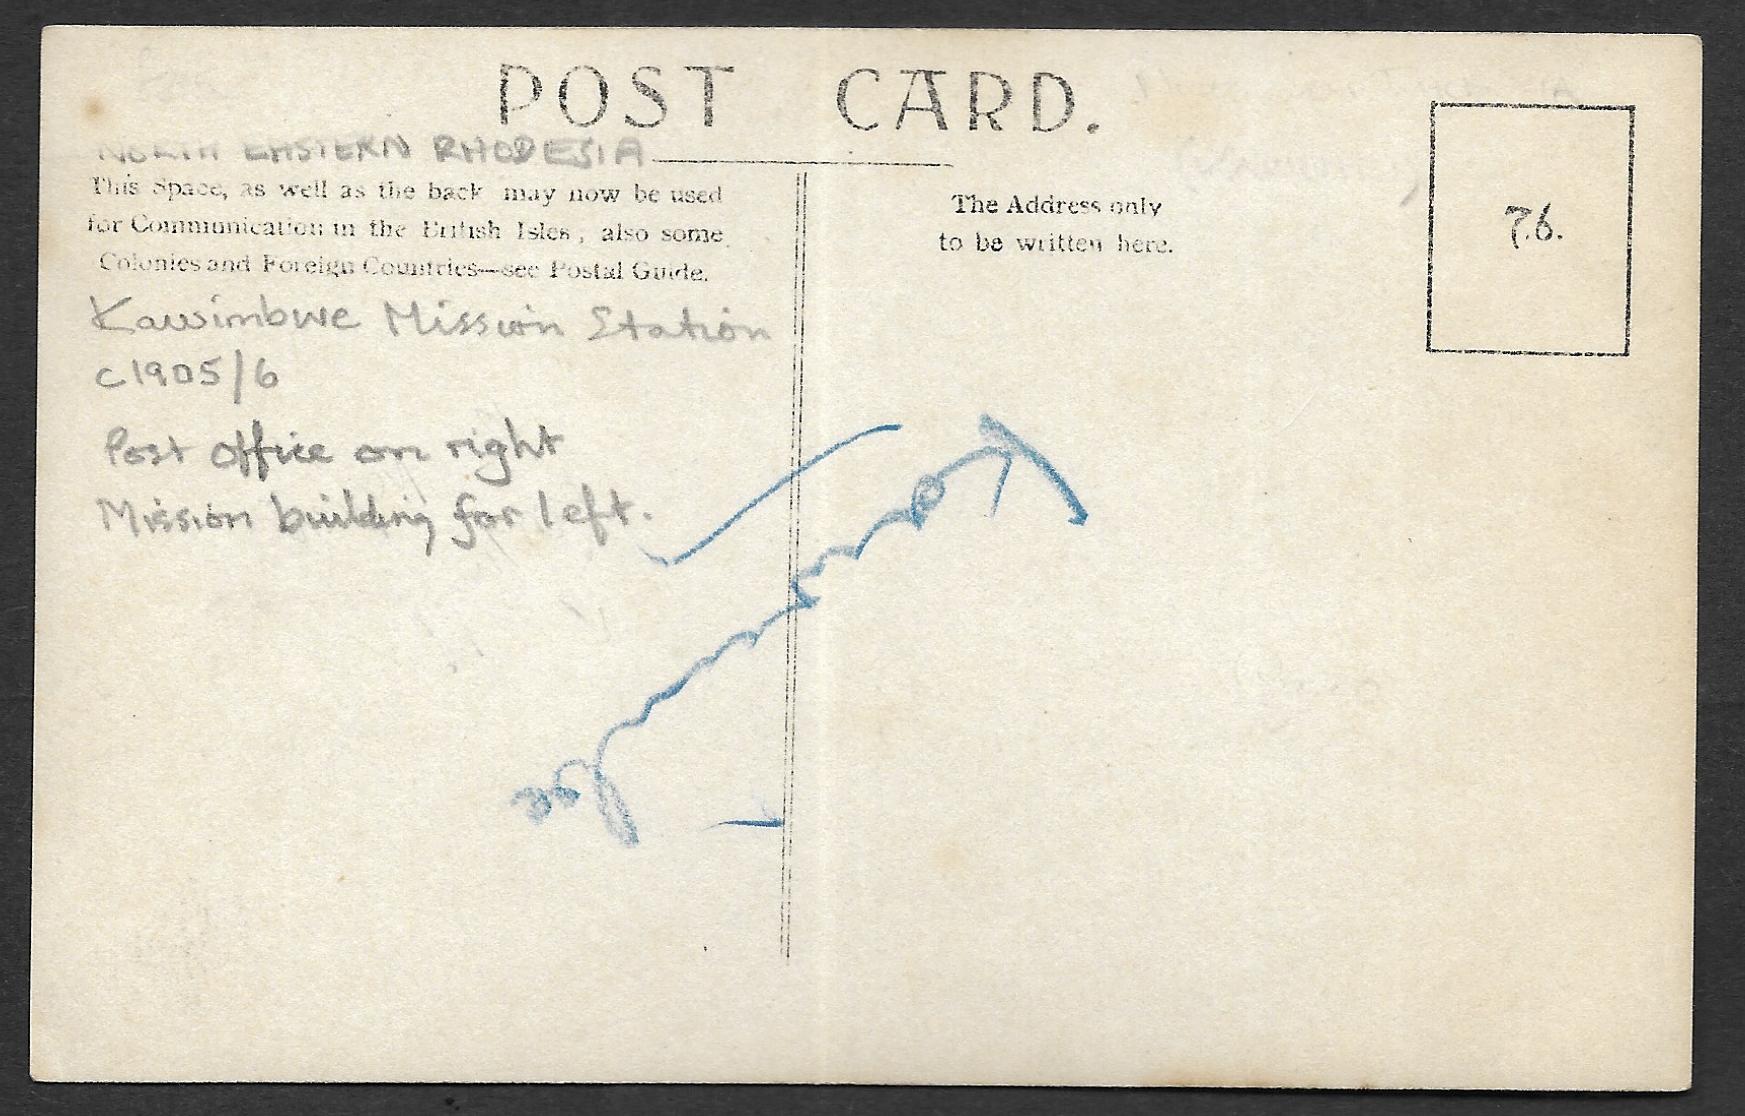 POST CARD.
NORTH EASTERN RHODESIA
This Space, as well as the back may now be used
for Communication in the British Isles, also some
Colonies and Foreign Countries—see Postal Guide.
The Address only
to be written here.
7.6.
Kawimbwe Mission Station
c1905/6
Post office on right
Mission building far left.